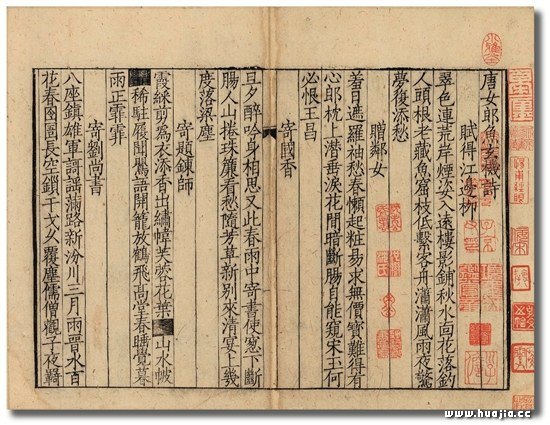 唐女郎魚玄機詩
賦得江邊柳
翠色連荒岸煙姿入遠樓影鋪秋水面花落釣
人頭根老藏魚窟枝低繫客舟瀟瀟風雨夜驚
夢復添愁
贈鄰女
羞日遮羅袖愁春懶起粧易求無價寶難得有
心郎枕上潛垂淚花間暗斷腸自能窺宋玉何
必恨王昌
寄國香
旦夕醉吟身相思又此春雨中寄書使窓下斷
腸人山捲珠簾看愁隨芳草新別來清宴上幾
度落梁塵
寄題鍊師
霞綵剪為衣添香出繡幃芙蓉花葉山水帔
稀駐履聞鶯語開籠放鶴飛高堂春睡覺暮
雨正霏霏
寄劉尚書
八座鎮雄軍謌謡滿路新汾川三月雨晋水百
花春囹圄長空鏁干戈乆覆塵儒僧觀子夜羇
www.huajia.cc